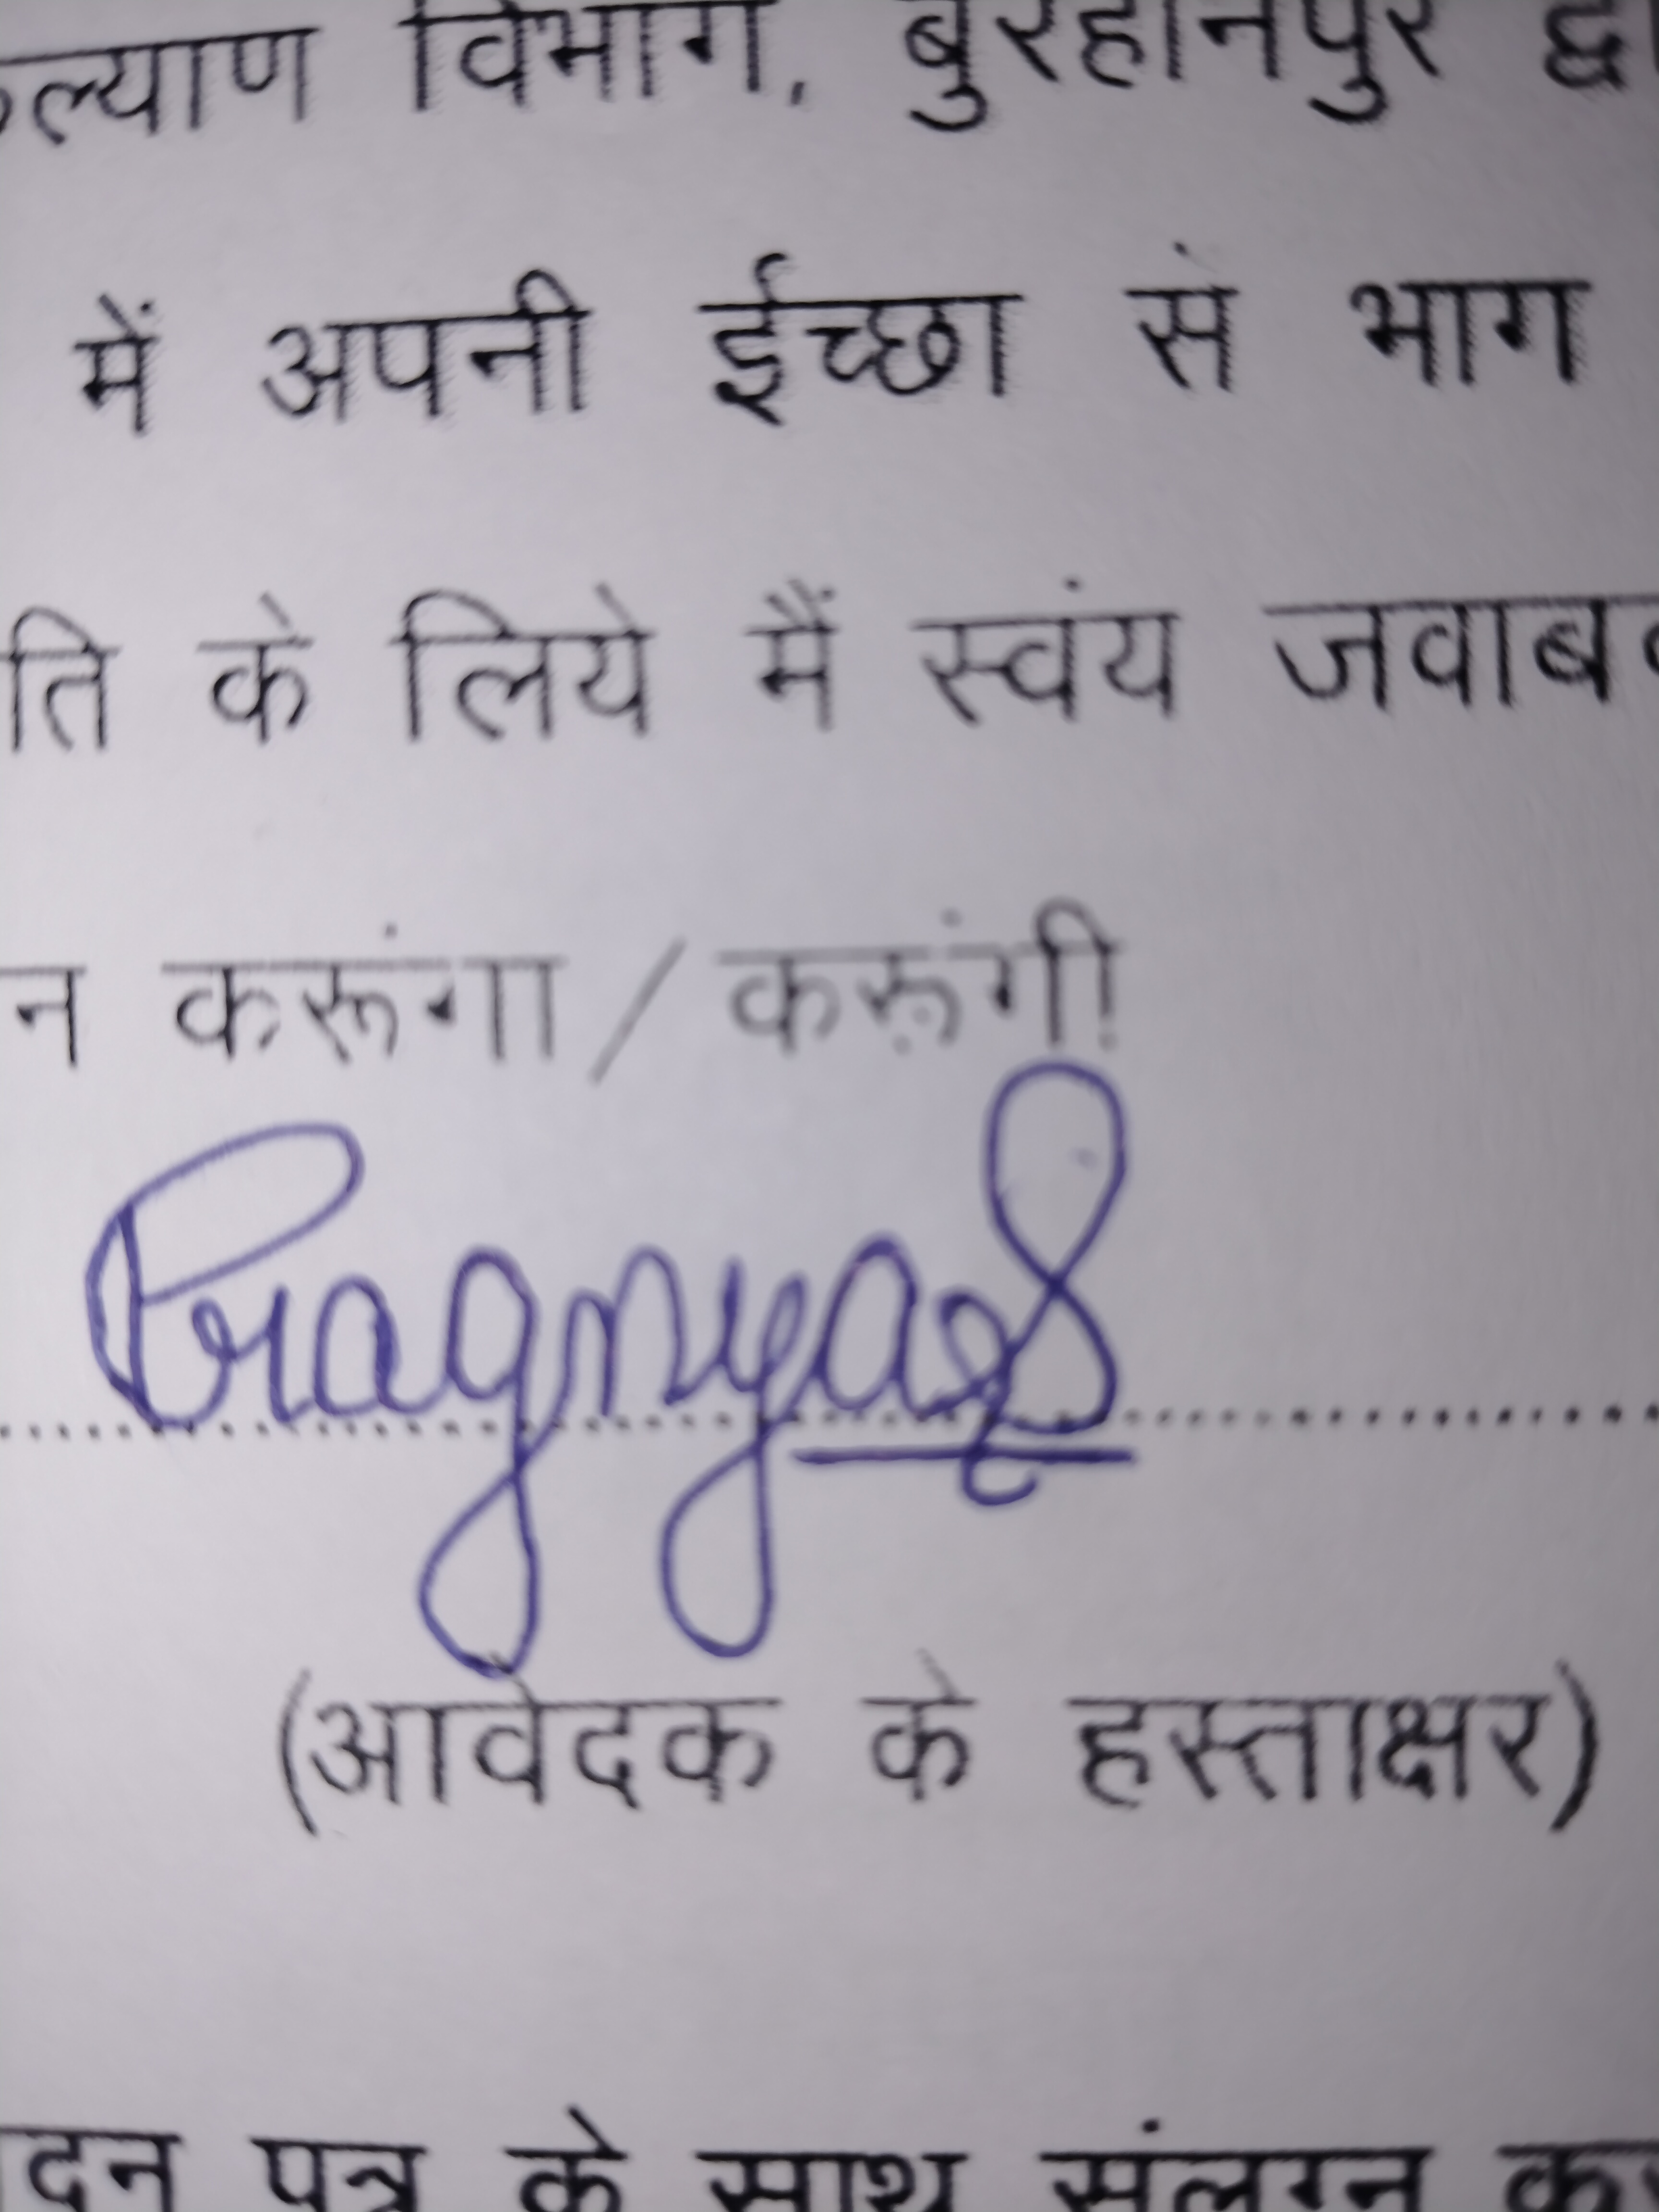 कल्याण विभाग, बुरहानपुर
में अपनी ईच्छा से भाग
ति के लिये मैं स्वंय
न करूंगा / करूंगी
Pragnya
(आवेदक के हस्ताक्षर)
पत्र के साथ संलग्न